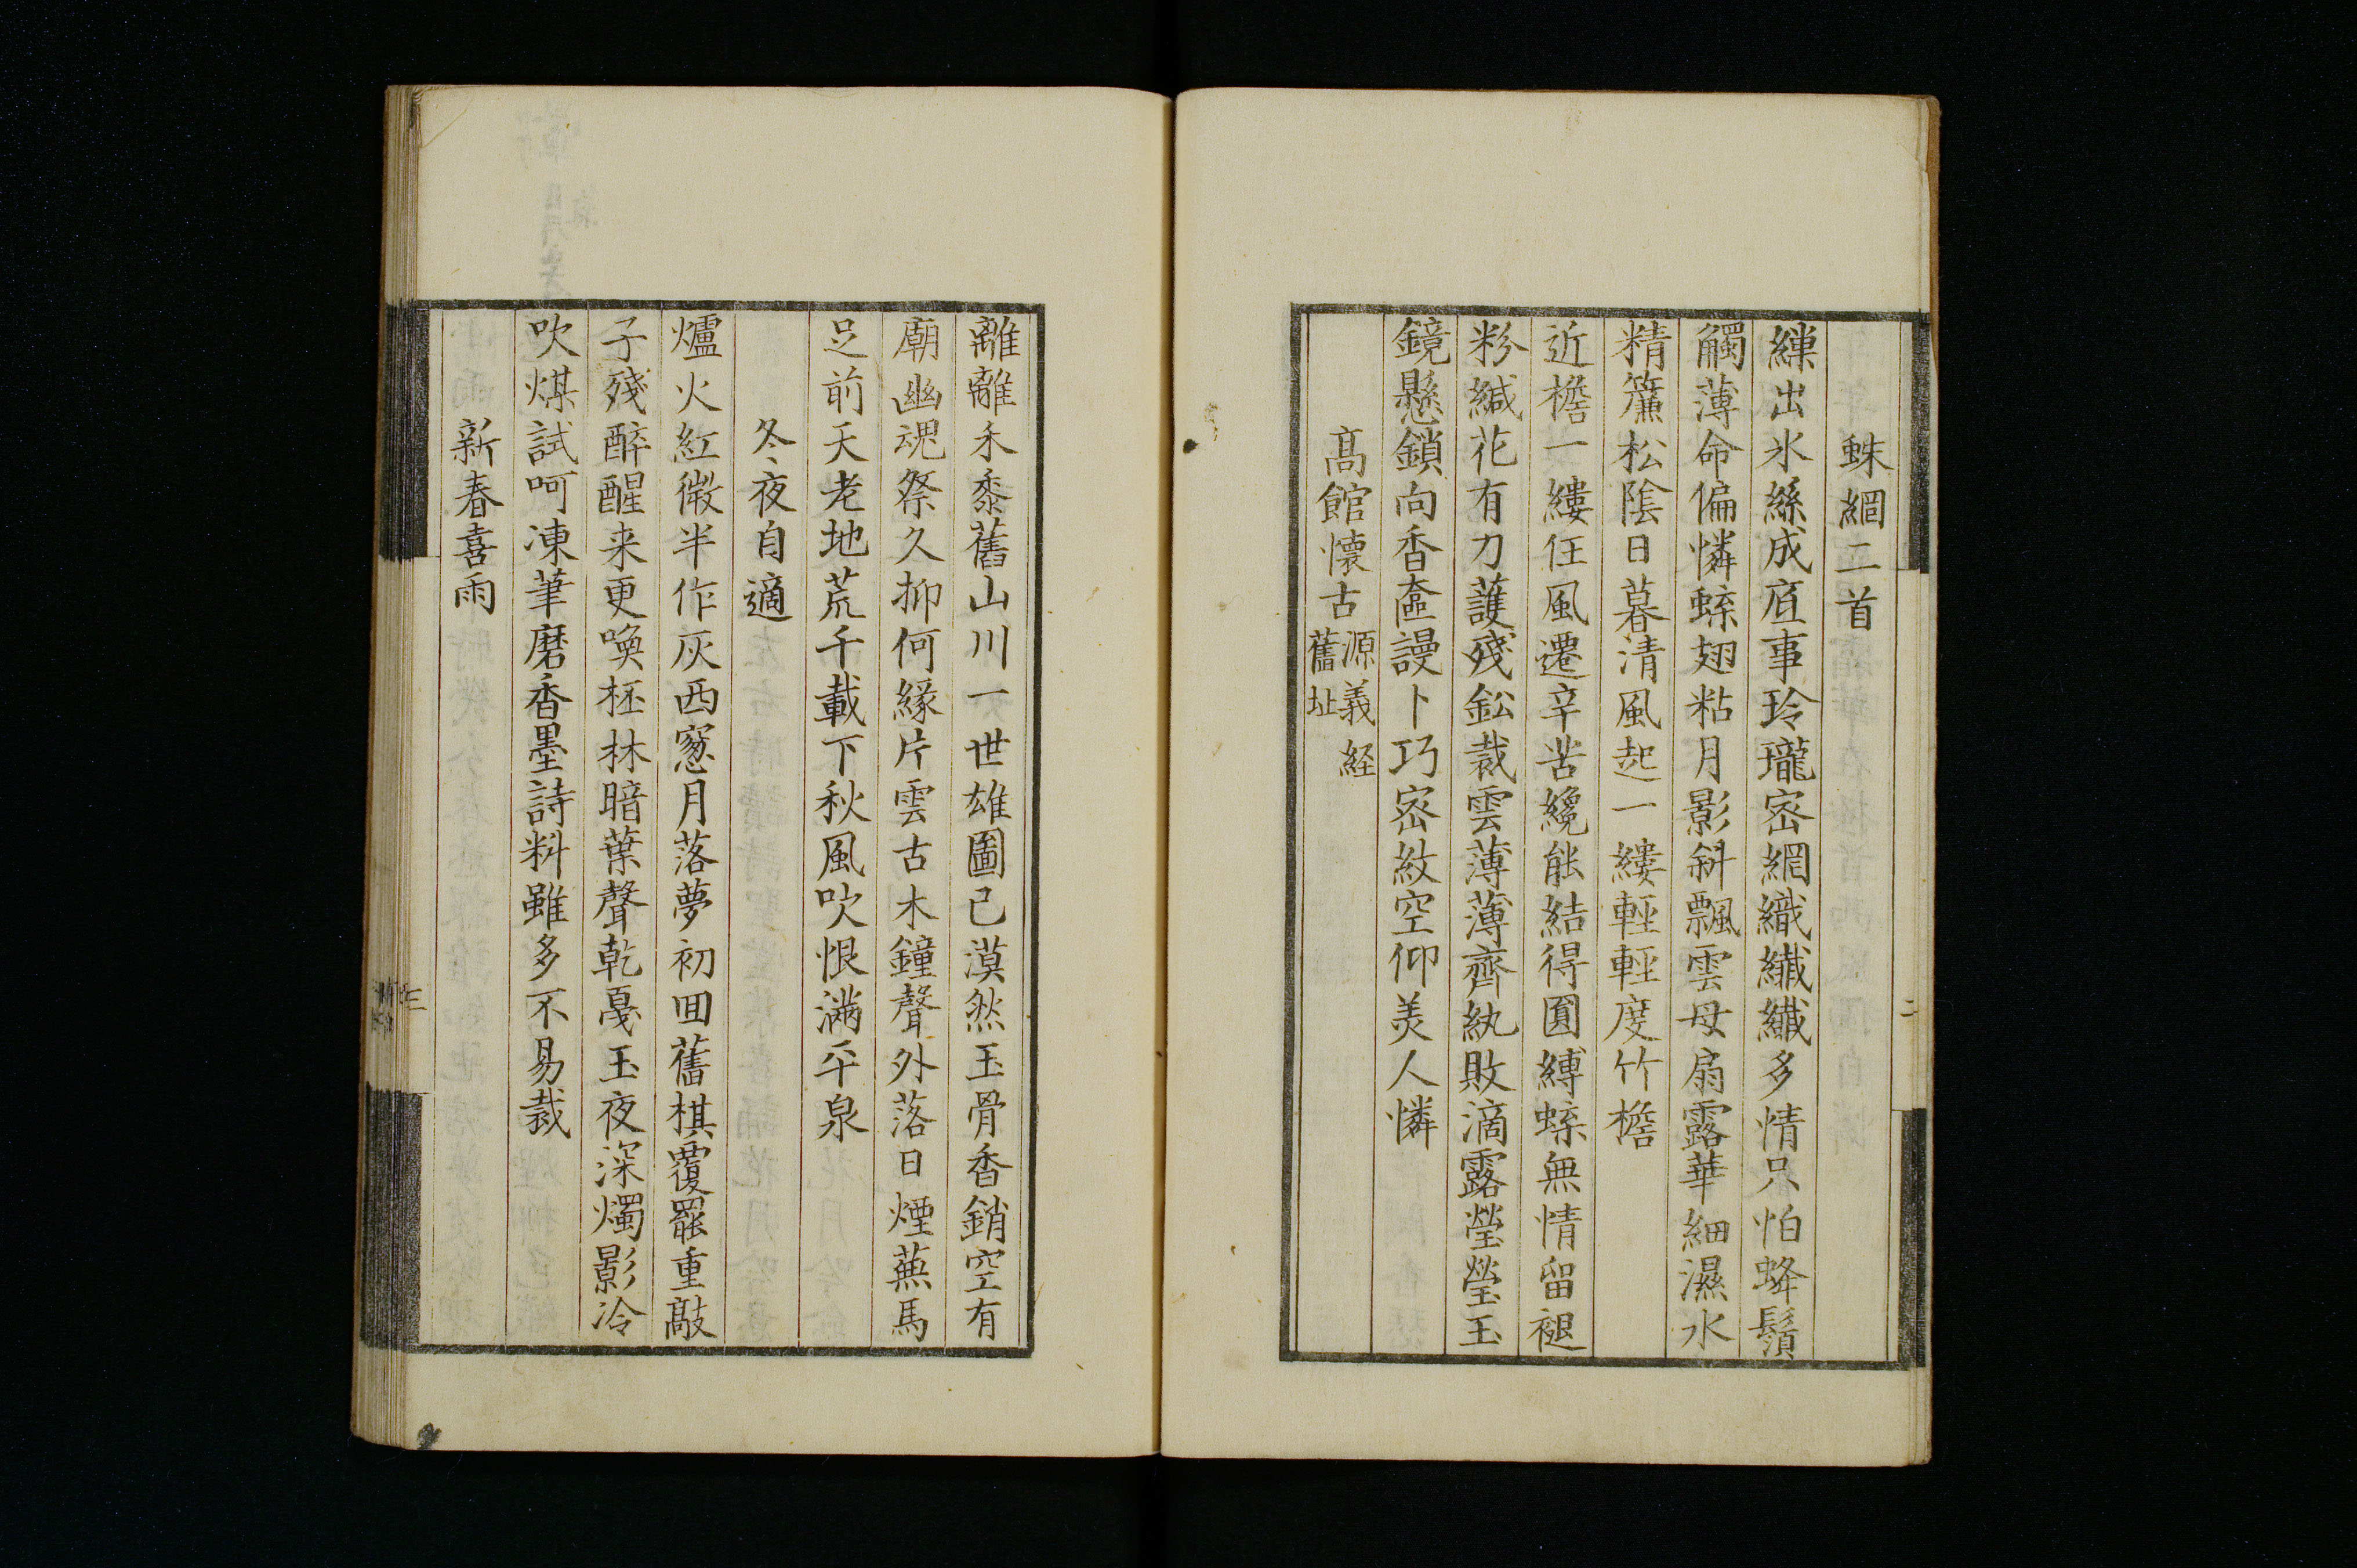 蛛網二首
繅出氷絲成底事玲瓏密網織纎纎多情只怕蜂鬚
觸薄命偏憐蛛翅粘月影斜飄雲母扇露華細濕水
精簾松陰日暮清風起一縷輕輕度竹檐
近檐一縷任風遷辛苦纔能結得圓縛蛛無情留褪
粉緘花有力護殘鈆裁雲薄薄齊紈敗滴露瑩瑩玉
鏡懸鎖向香奩謾卜巧密紋空仰美人憐
高館懷古源義経舊址
離離禾黍舊山川一世雄圖已漠然玉骨香銷空有
廟幽魂祭久抑何緣片雲古木鐘聲外落日煙蕪馬
足前天老地荒千載下秋風吹恨滿平泉
冬夜自適
爐火紅微半作灰西窓月落夢初回舊棋覆罷重敲
子殘醉醒来更喚杯林暗葉聲乾戛玉夜深燭影冷
吹煤試呵凍筆磨香墨詩料雖多不易裁
新春喜雨
二
三